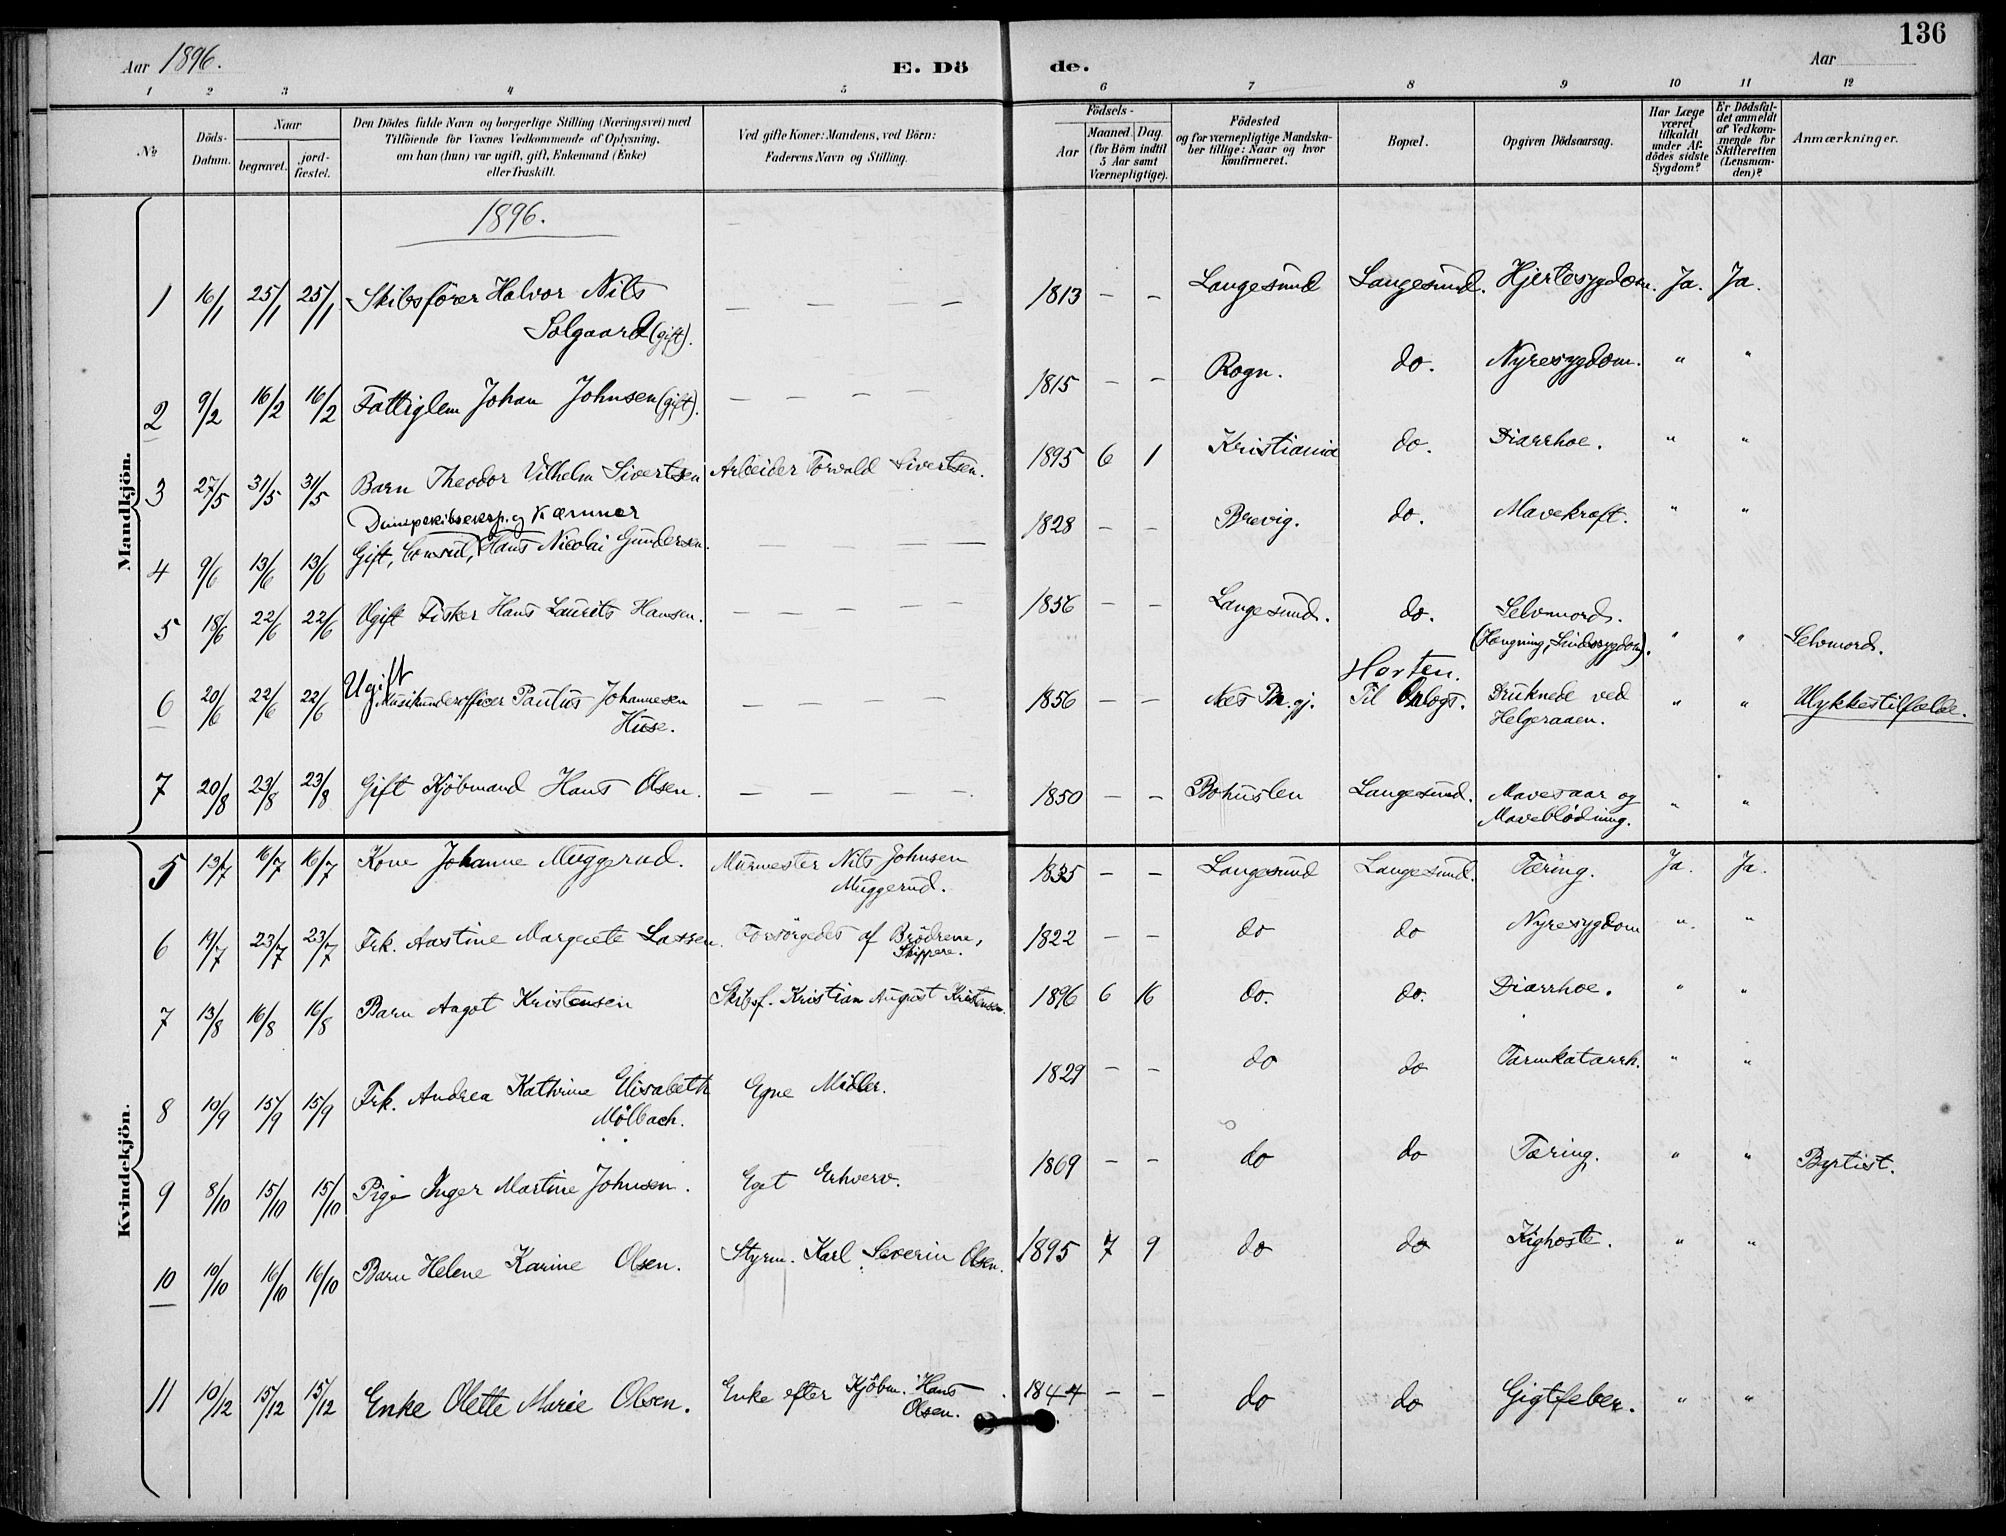 136
Aar 1896. E. Dö de. Aar
1 2 3 4 5 6 7 8 9 10 11 12
№
Döds-Datum.
Naar
begravet. jord-fæstet.
Den Dödes fulde Navn og borgerlige Stilling (Næringsvei) med
Tilföiende for Voxnes Vedkommende af Oplysning,
om han (hun) var ugift, gift, Enkemand (Enke)
eller fraskilt.
Ved gifte Koner: Mandens, ved Börn:
Faderens Navn og Stilling.
Födsels-
Aar
Maaned. Dag.
(for Börn indtil
5 Aar samt
Værnepligtige).
Födested
og for værnepligtige Mandska-
ber tillige: Naar og hvor
konfirmeret.
Bopæl.
Opgiven Dödsaarsag.
Har Læge
været
tilkaldt
under Af-
dödes sidste
Sygdom?
Er Dödsfal-
det anmeldt
af Vedkom-
mende for
Skifteretten
(Lensman-
den)?
Anmærkninger.
1896.
Mandkjön.
1 16/1 25/1 25/1 Skibsförer Halvor Nils — — — 1813 — — Langesund Langesund. Hjertesygdom. Ja. Ja.
Solgaard (gift).
2 9/2 16/2 16/2 Fattiglem Johan Johnsen (gift). — — — — 1815 — — Rogn. do. Nyresygdom. " "
3 27/5 31/5 31/5 Barn Theodor Vilhelm Sivertsen Arbeider Torvald Sivertsen. 1895 6 1 Kristiania do. Diarrhoe. " "
Dampskibsexp. og Kæmner
4 9/6 13/6 13/6 Gift, Consul, Hans Nicolai Gundersen. — — — — 1828 — — Brevig. do. Mavekræft. " "
5 18/6 22/6 22/6 Ugift Fisker Hans Laurits Hansen. — — — — — 1856 — — Langesund. do. Selvmord.
(Hængning, Sindssygdom). " " Selvmord.
6 20/6 22/6 22/6 Ugift Musikunderofficer Paulus Johannesen — — — — 1856 — — Næs Pr.gj. Horten. Til Orlogs. Druknede ved " " Ulykkestilfælde.
Huse. Helgeraaen.
7 20/8 23/8 23/8 Gift Kjöbmand Hans Olsen. — — — — — 1850 — — Bohuslen Langesund. Mavesaar og " "
Maveblödning.
Kvindekjön.
5 13/7 16/7 16/7 Kone Johanne Muggerud. Murmester Nils Johnsen 1835 — — Langesund Langesund. Tæring. Ja. Ja.
Muggerud.
6 19/7 23/7 23/7 Frk. Aastine Margrete Lassen. Forsörgedes af Brödrene, 1822 — — do do Nyresygdom " "
Skippere.
7 13/8 16/8 16/8 Barn Aagot Kristensen Skibsf. Kristian August Kristensen. 1896 6 16 do. do. Diarrhoe. " "
8 10/9 15/9 15/9 Frk. Andrea Kathrine Elisabeth Egne Midler. 1829 — — do do Tarmkatarrh. " "
Mölbach.
9 8/10 15/10 15/10 Pige Inger Martine Johnsen. Eget Erhverv. 1869 — — do do Tæring. " " Baptist.
10 10/10 16/10 16/10 Barn Helene Karine Olsen. Styrm. Karl Severin Olsen. 1895 7 9 do do Kighoste. " "
11 10/12 15/12 15/12 Enke Olette Marie Olsen. Enke efter Kjöbm. Hans 1844 — — do do Gigtfeber. " "
Olsen.